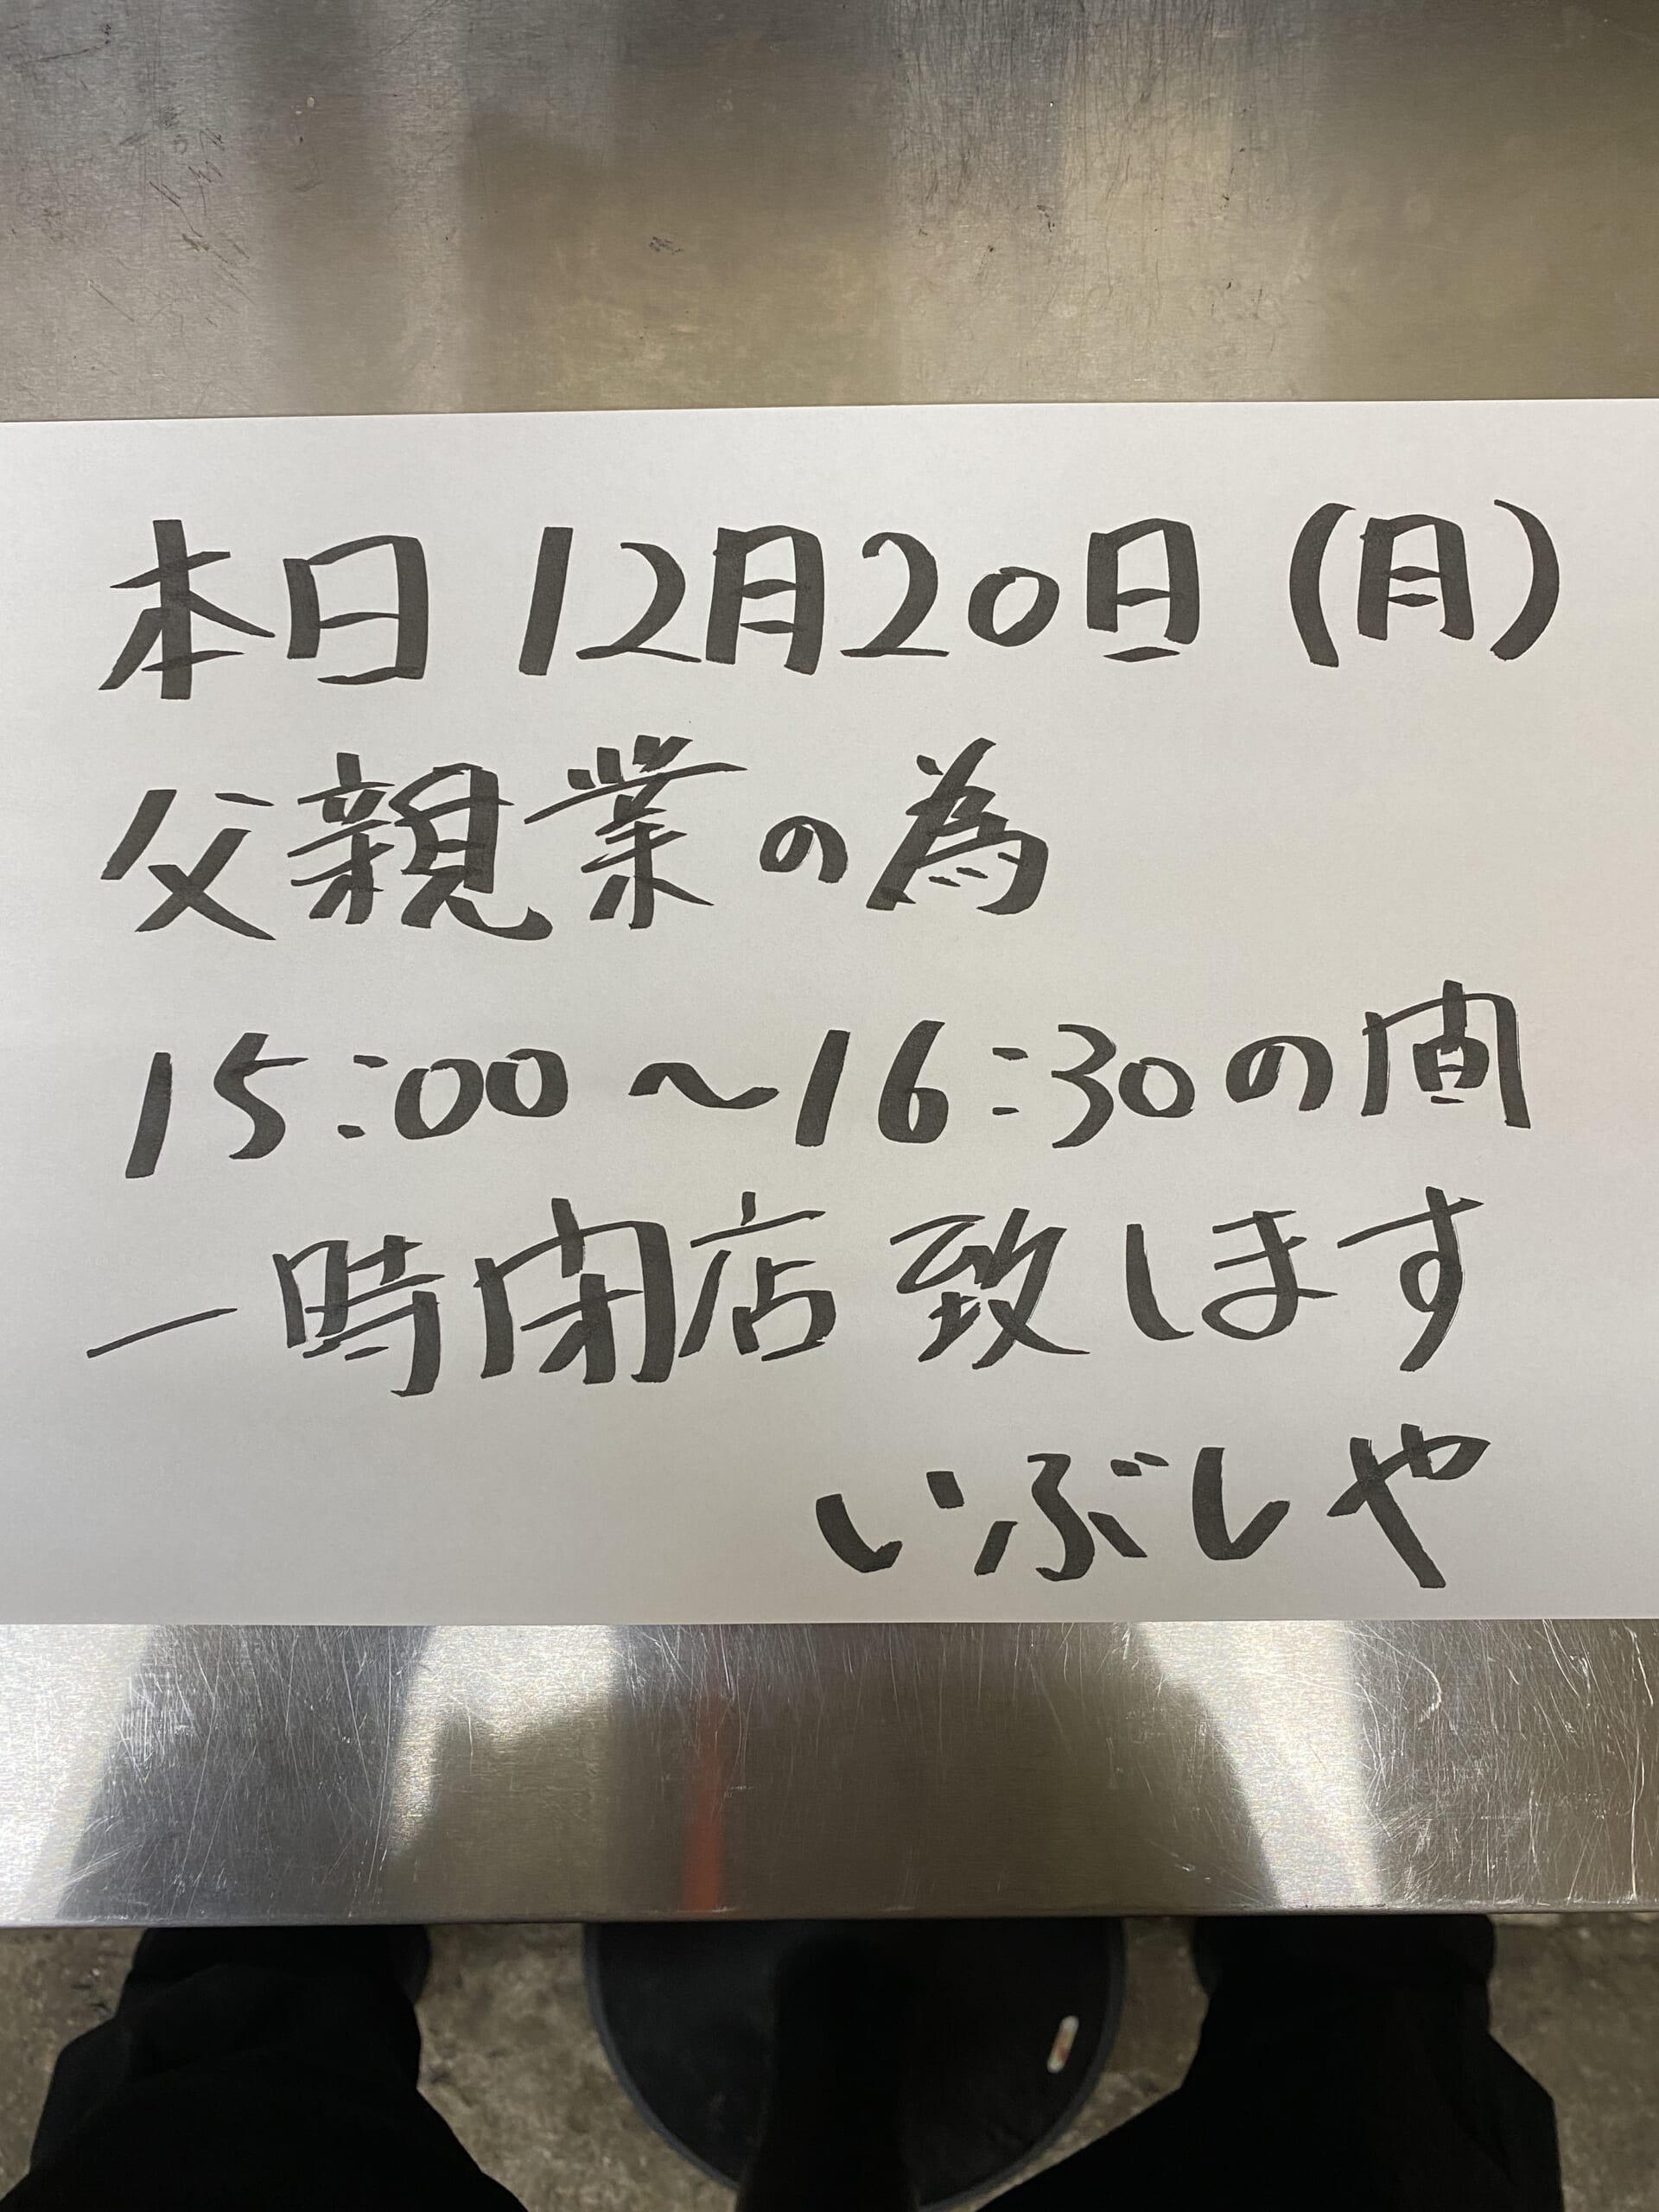 本日 12月20日 (月)
父親業の為
15:00~16:30の間
一時閉店致します
いぶしや